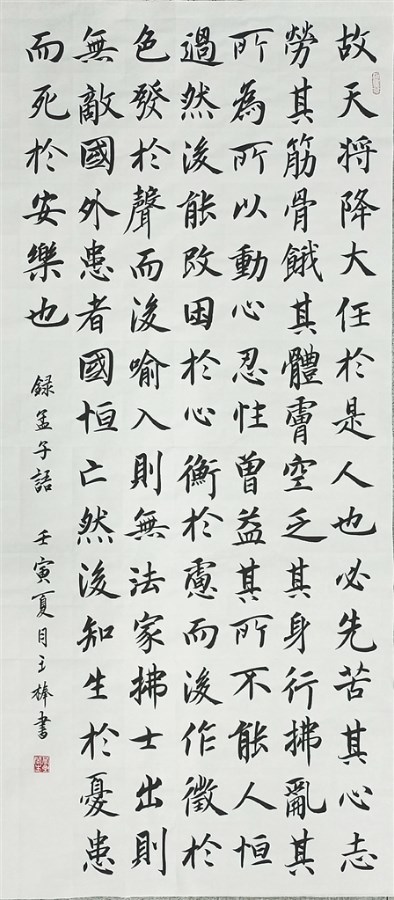 故天将降大任於是人也必先苦其心志
勞其筋骨餓其體膚空乏其身行拂亂其
所為所以動心忍性曾益其所不能人恒
過然後能改困於心衡於慮而後作徵於
色發於聲而後喻入則無法家拂士出則
無敵國外患者國恒亡然後知生於憂患
而死於安樂也
録孟子語 壬寅夏月 書